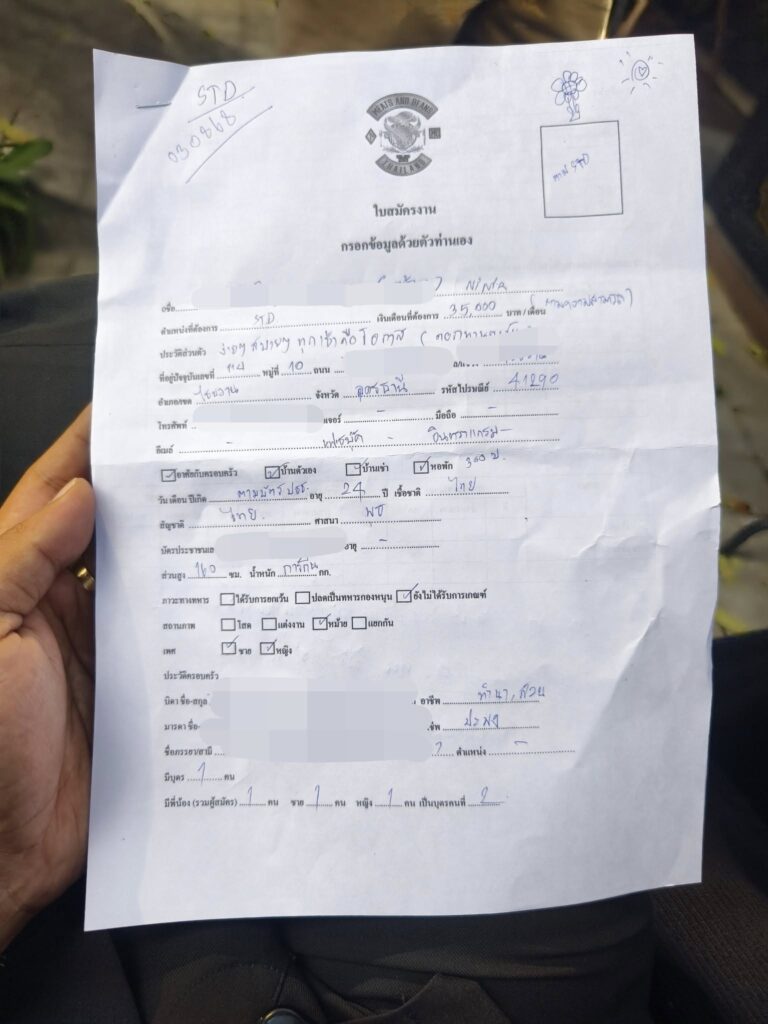 STD
030868
MEATS AND BEANS
THAILAND
ตาม STD
ใบสมัครงาน
กรอกข้อมูลด้วยตัวท่านเอง
NINJA
ตำแหน่งที่ต้องการ STD เงินเดือนที่ต้องการ 35,000 บาท / เดือน (ตามความสามารถ)
ประวัติส่วนตัว ง่ายๆ สบายๆ ทุกเช้าคือโอกาส
ที่อยู่ปัจจุบันเลขที่ หมู่ที่ 10 ถนน
อำเภอ/เขต ไชยวาน จังหวัด อุดรธานี รหัสไปรษณีย์ 41290
โทรศัพท์ เพจเจอร์ - มือถือ -
อีเมล์ - เฟซบุ๊ค - อินสตาแกรม -
อาศัยกับครอบครัว บ้านตัวเอง บ้านเช่า หอพัก 300 บ.
วัน เดือน ปีเกิด ตามบัตร ปชช. อายุ 24 ปี เชื้อชาติ ไทย
สัญชาติ ไทย ศาสนา พุธ
บัตรประชาชน อายุ -
ส่วนสูง 160 ซม. น้ำหนัก กก.
ภาวะทางทหาร ได้รับการยกเว้น ปลดเป็นทหารกองหนุน ยังไม่ได้รับการเกณฑ์
สถานภาพ โสด แต่งงาน หม้าย แยกกัน
เพศ ชาย หญิง
ประวัติครอบครัว
บิดา ชื่อ-สกุล อาชีพ ทำนา, สวน
มารดา ชื่อ-
ชื่อภรรยา/สามี ตำแหน่ง -
มีบุตร 1 คน
มีพี่น้อง (รวมผู้สมัคร) 1 คน ชาย 1 คน หญิง 1 คน เป็นบุตรคนที่ 2